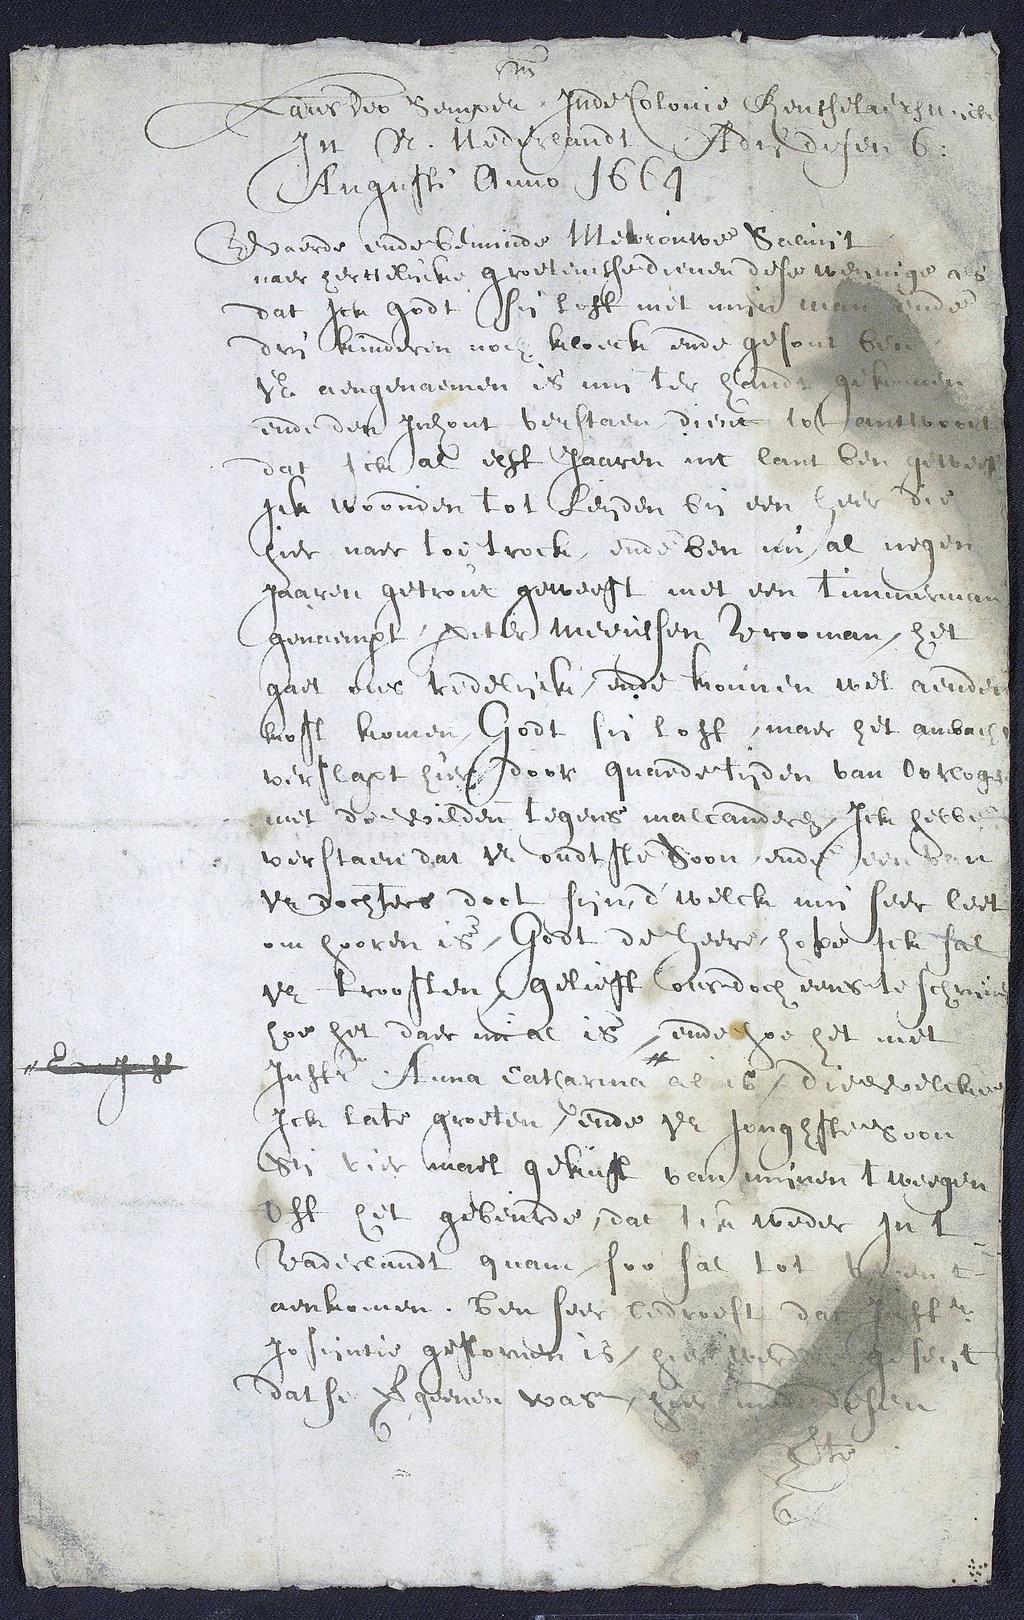 Laus Deo Semper. Inde Colonie Renthselaerswijck
In N. Nederlandt Adij desen 6:
Augusti Anno 1664
Waerde ende beminde Mevrouwe Saluijt
naer hertelijcke groetenisse dienen dese wenige als
dat Ick godt sij loff met mijn man ende
drij kinderen noch kloeck ende gesont ben
VE aengenaemen is mij ter handt gekomen
ende den Inhout verstaen dient tot antwoort
dat Ick al elff Jaaren int lant ben geweest
Ick woonden tot Leijden bij een heer die
hier naer toe trock, ende ben nu al negen
Jaaren getrout geweest met een timmerman
genaempt Pieter Meeussen Vrooman, het
gaet ons redelijck, ende konnen wel aenden
kost komen, Godt sij loff, maer het ambacht
verslapt hier door quaede tijden van Oorloge
met de wilden tegens malcanderen, Ick hebbe
verstaen dat VE oudtste Soon ende een van
VE dochters doot sijn, d'welck mij seer leet
om hooren is, Godt de heere hope Ick sal
VE troosten, gelieft ons doch eens te schrijven
hoe het daer int al is, ende hoe het met
Juffr Anna Catharina al is, die welcke
Ick late groeten, ende VE Jonghste Soon
Sij vier mael gekust van mijnen tweegen
Off het gebeurde, dat Ick weder In t
Vaderlandt quam, soo sal tot
aenkomen. Ben seer bedroeft dat Juffr
Josijntie gestorven is, hier geseijt
dat se was, hier mede